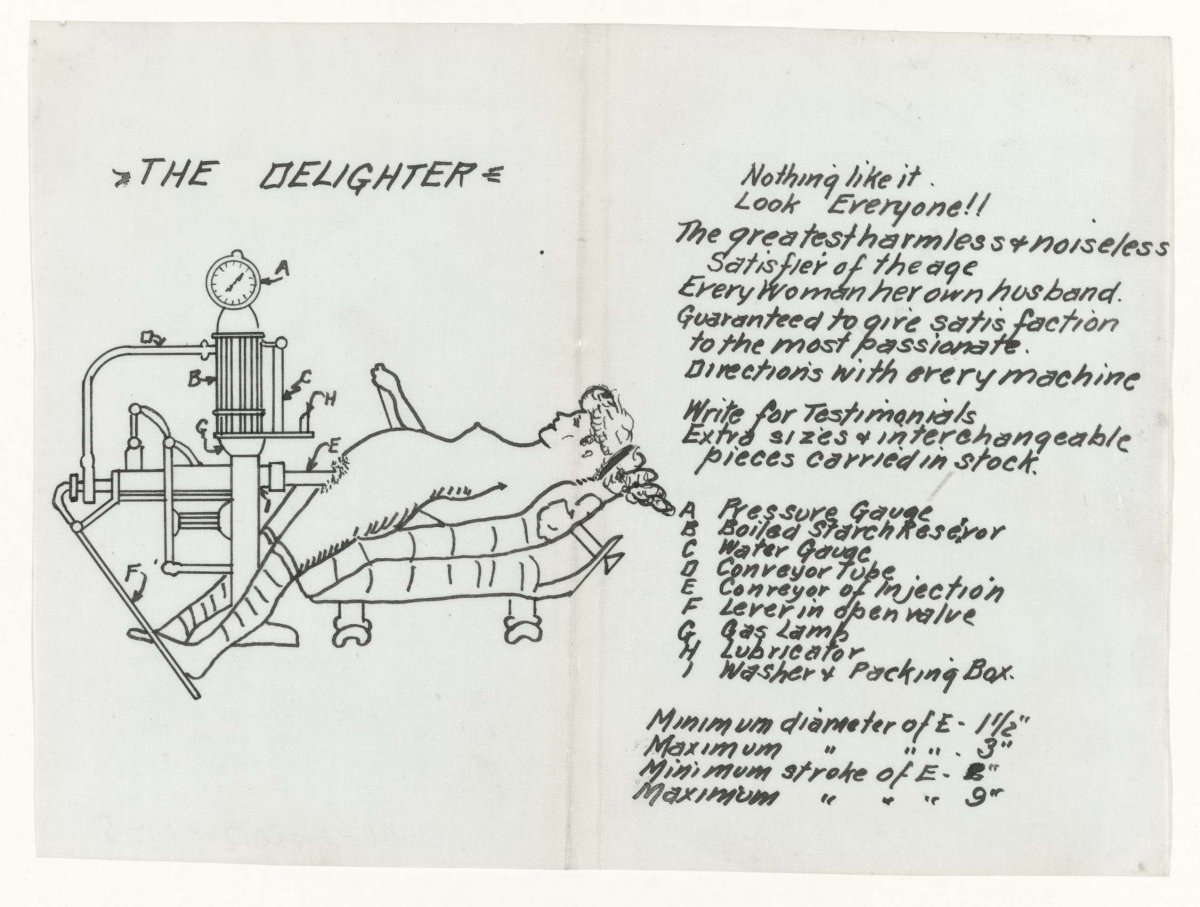 THE DELIGHTER
A
D
B
C
H
G
E
I
F
Nothing like it.
Look Everyone!!
The greatest harmless & noiseless
Satisfier of the age
Every Woman her own husband.
Guaranteed to give satisfaction
to the most passionate.
Directions with every machine
Write for Testimonials
Extra sizes & interchangeable
pieces carried in stock.
A Pressure Gauge
B Boiled Starch Reservor
C Water Gauge
D Conveyor Tube
E Conveyor of Injection
F Lever in open valve
G Gas Lamp
H Lubricator
I Washer & Packing Box.
Minimum diameter of E - 1 1/2"
Maximum " " " . 3"
Minimum stroke of E -
Maximum " " " 9"